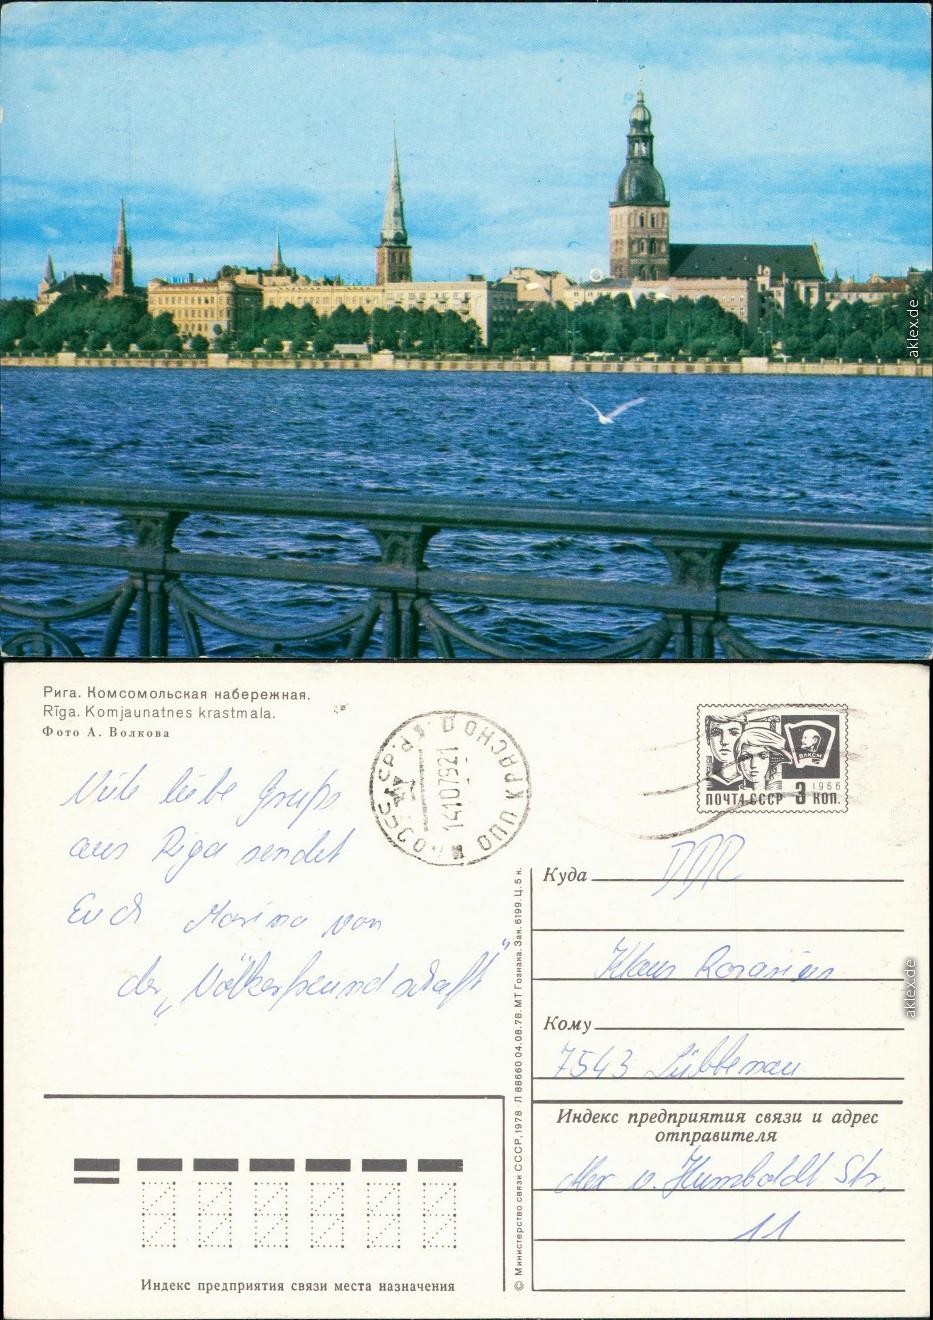 aklex.de
Рига. Комсомольская набережная.
Rīga. Komjaunatnes krastmala.
Фото А. Волкова
liebe Grüße
aus Riga sendet
Euch Marina von
der „Völkerfreundschaft"
ПОЧТА СССР 3 КОП.
1966
ВЛКСМ
14107921
Куда DDR
Klaus
Кому
7543 Lübbenau
Индекс предприятия связи и адрес
отправителя
Alex v. Humboldt Str.
11
Индекс предприятия связи места назначения
© Министерство связи СССР, 1978. Л 88660 04.08.78. МТ Гознака. Зак. 6199. Ц. 5 к.
aklex.de